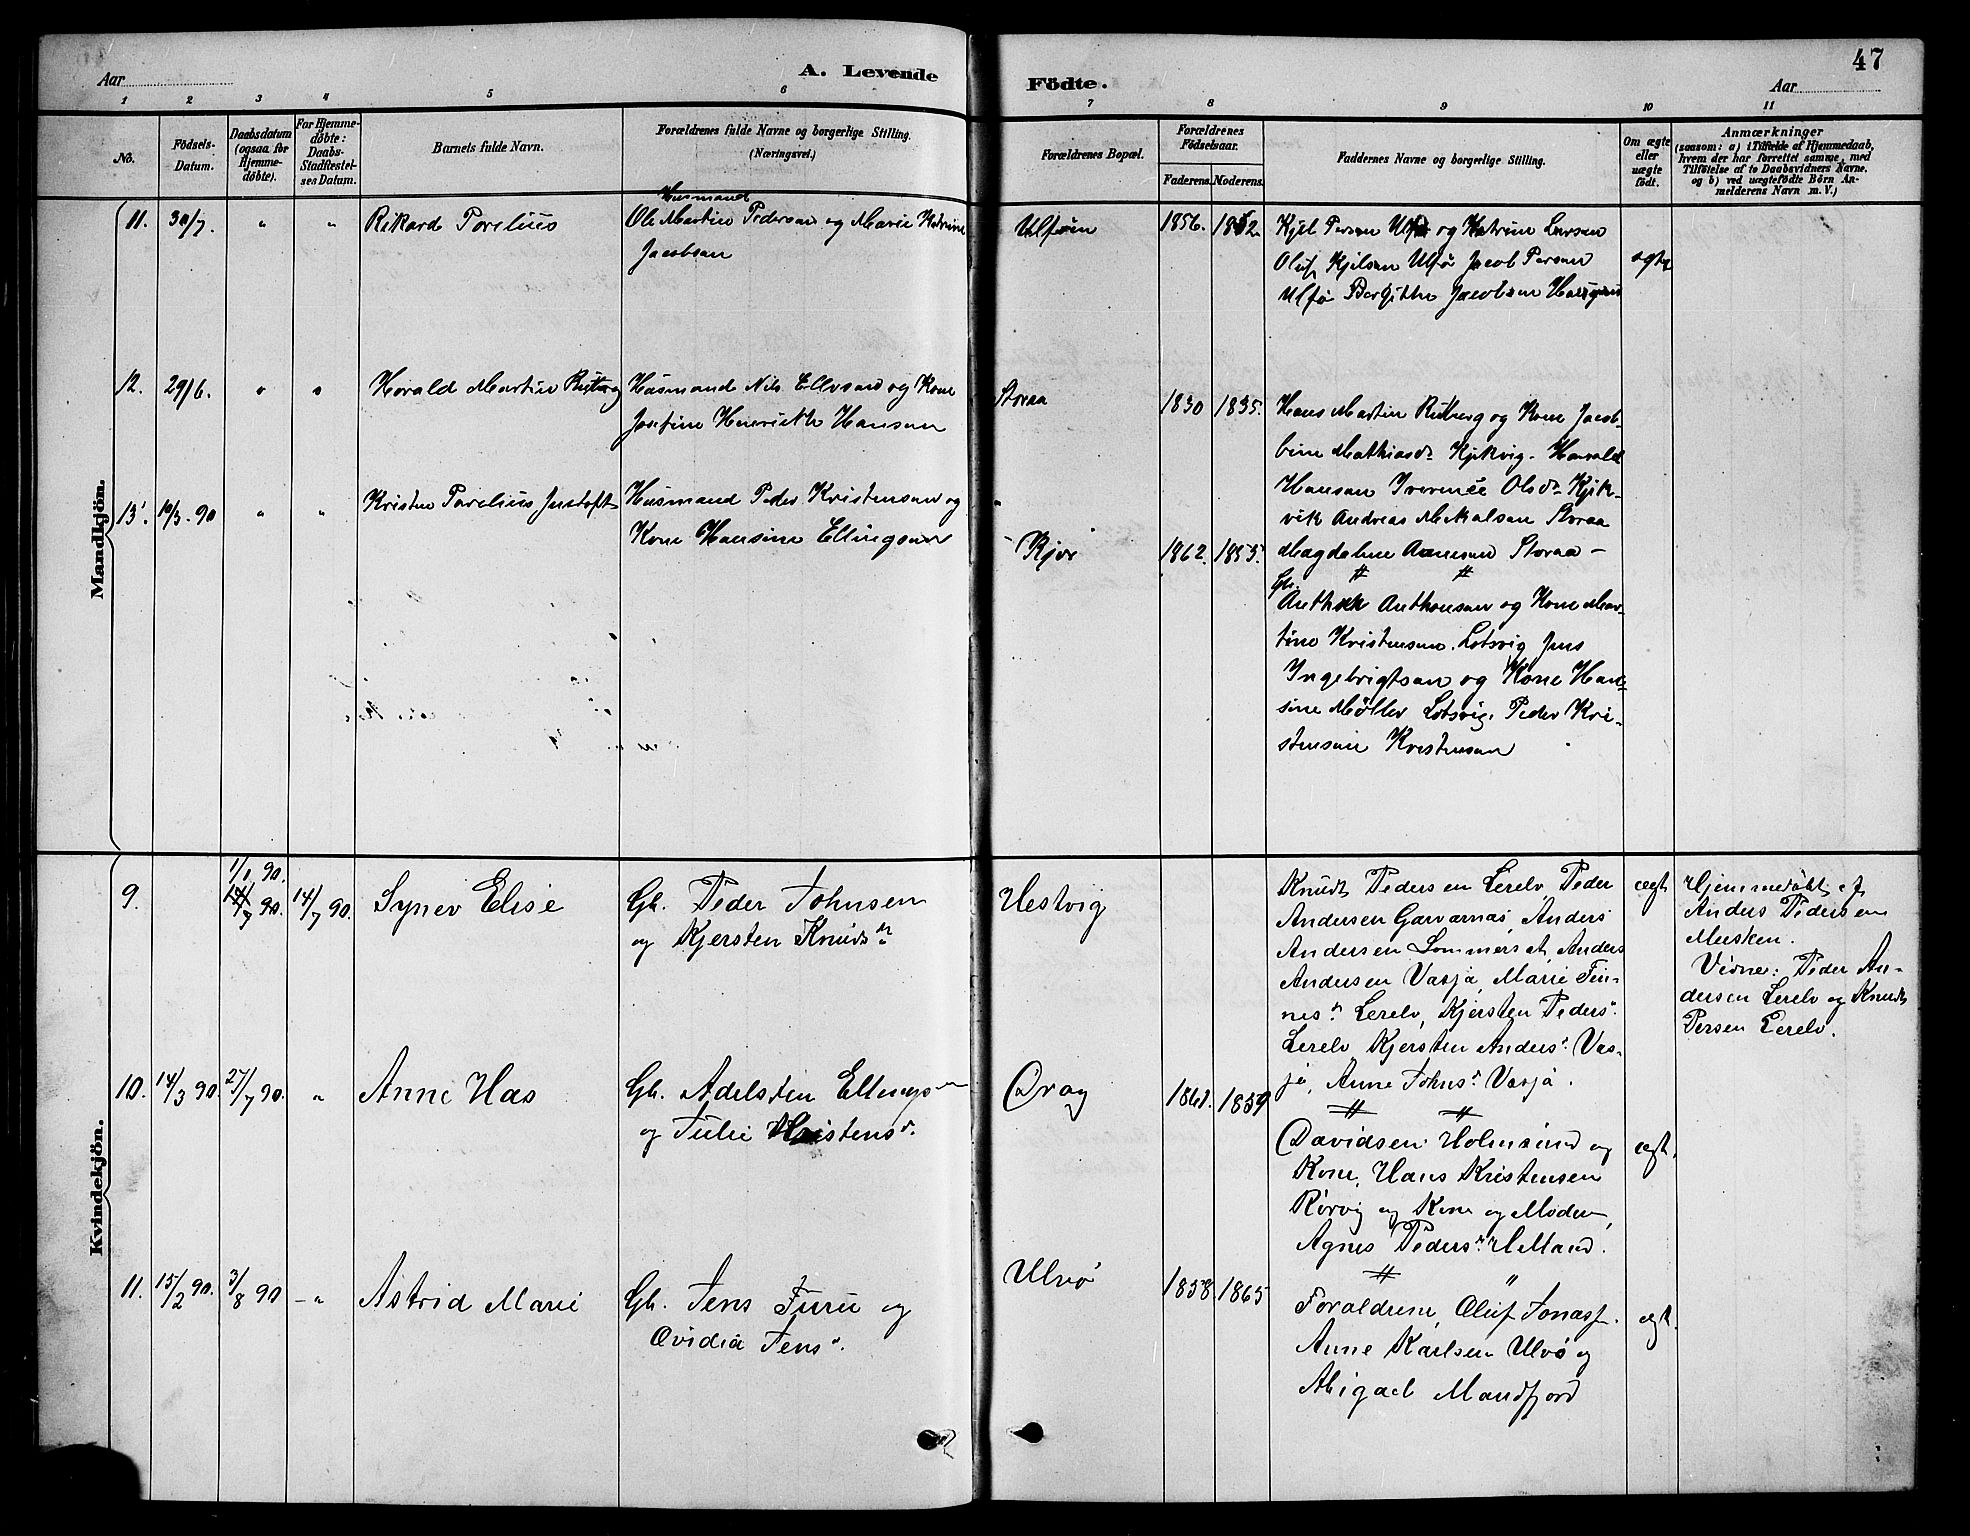 Aar
A. Levende
Födte.
Aar
47
1 2 3 4 5 6 7 8 9 10 11
No.
Födsels-
Datum.
Daabsdatum
(ogsaa for
Hjemme-
döbte).
For Hjemme-
döbte:
Daabs-
Stadfæstel-
ses Datum.
Barnets fulde Navn.
Forældrenes fulde Navne og borgerlige Stilling.
(Næringsvei.)
Forældrenes Bopæl.
Forældrenes
Födselsaar.
Faderens. Moderens.
Faddernes Navne og borgerlige Stilling.
Om ægte
eller
uægte
födt.
Anmærkninger
(saasom: a) i Tilfælde af Hjemmedaab,
hvem der har forrettet samme, med
Tilföielse af to Daabsvidners Navne,
og b) ved uægtefödte Börn An-
melderens Navn m. V.)
Mandkjön.
11. 30/7. " " Rikard Parelius
Husmand
Ole Martin Pedersen og Marie Katrine
Jacobsen
Ulføen
1856. 1852
Kjel Persen Ulfø og Katrine Larsen
Oluf Kjelsen Ulfø Jacob Persen
Ulfø Bergitte Jacobsen
ægte
12. 29/6. " " Harald Martin Rutberg
Husmand Nils Ellevsen og Kone
Josefine Henrikke Hansen
Storaa
1830 1835.
Hans Martin Rutberg og Kone Jacob-
bine Mathiasdr Kjikvig. Harald
Hansen Iverence Olsdr Kjik-
vik Andreas Mikalsen Storaa
Magdalene Anesen Storaa –
13. 10/3. 90 " " Kristen Parelius Justoft
Husmand Peder Kristensen og
Kone Hansine Ellingsen
Kjør
1862. 1855.
Gb.
Anthon Anthonsen og Kone Mar-
tine Kristensen. Lotsvig Jens
Ingebrigtsen og Kone Han-
sine Møller Lotsvig. Peder Kri-
stensen Kristensen
Kvindekjön.
9. 14/7 90. 14/7 90. Synev Elise
Gb. Peder Johnsen
og Kjersten Knudsdr
Hestvig
Knudt Pedersen Lerelv Peder
Andersen Garvarnas, Anders
Andersen Sommerset, Anders
Andersen Vasja, Marie Fin-
nesdr Lerelv, Kjersten Pedersdr
Lerelv Kjersten Andersdr Vas-
ja, Anne Johnsdr Vasja.
ægt.
Hjemmedøbt af
Anders Pedersen
Musken.
Vidne: Peder An-
dersen Lerelv og Knudt
Persen Lerelv.
10. 14/3 90. 27/7 90. " Anne Has
Gb. Adelsten Ellings
og Julie Kristensdr.
Drag
1861. 1859
Davidsen Holmsund og
Kone, Hans Kristensen
Rørvig og Kone og Moderen,
Agnes Pedersdr Helland.
ægt.
11. 15/2 90. 3/8 90 – " Astrid Marie
Gb. Jens Furu og
Ovidia Jensdr.
Ulvø
1858. 1865
Forældrene, Oluf Jonas.
Anne Karlsen Ulvø og
Abigael Mandfjord
ægt.